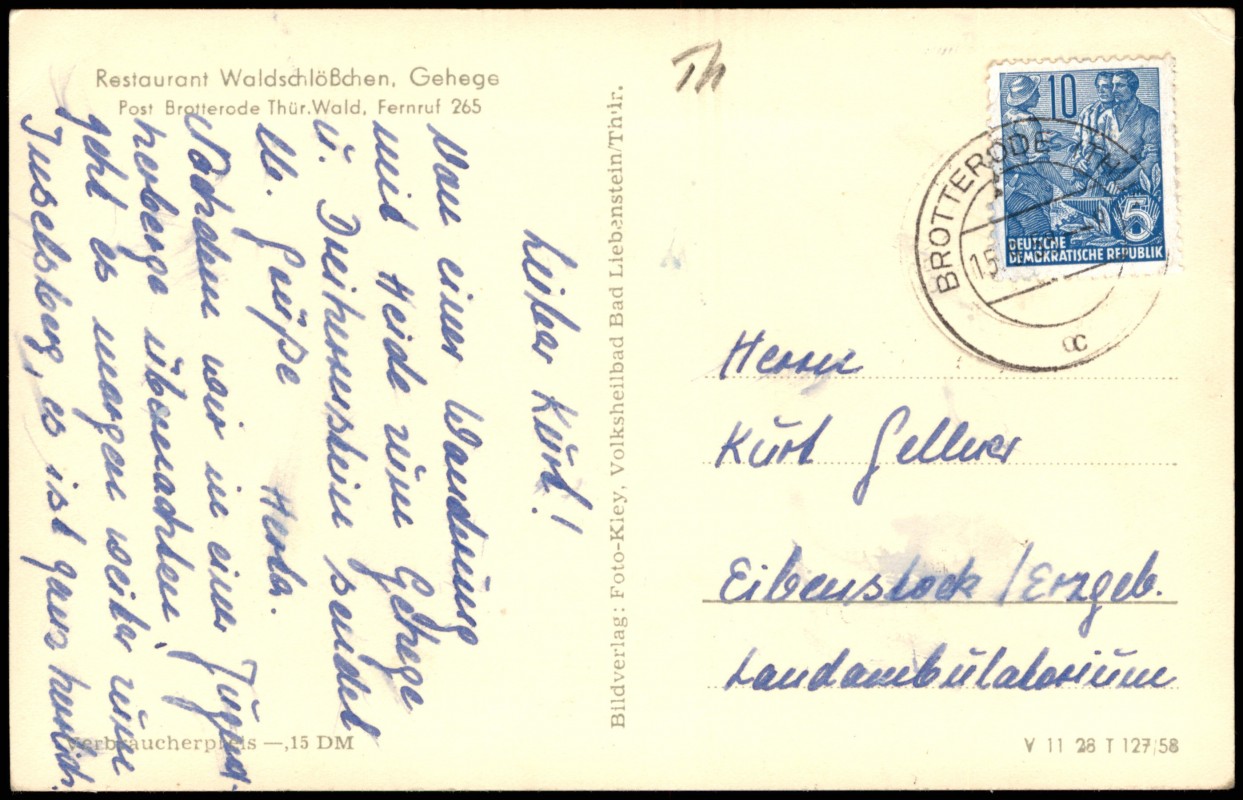 Restaurant Waldschlößchen, Gehege
Post Brotterode Thür. Wald, Fernruf 265
Lieber Kurt!
Von einer Wanderung
mit Heide zum Gehege
u. Dreiherrnstein sendet
lb. Grüße
Herta.
Nachdem wir in einer Jugend-
herberge übernachten,
geht es morgen weiter zum
Inselsberg, es ist ganz herrlich.
Verbraucherpreis —,15 DM
Bildverlag: Foto-Kley, Volksheilbad Bad Liebenstein/Thür.
Th
10
5
DEUTSCHE
DEMOKRATISCHE REPUBLIK
BROTTERODE (TH
15.
Herrn
Kurt Gellner
Eibenstock/Erzgeb.
Landambulatorium
V 11 28 T 127/58